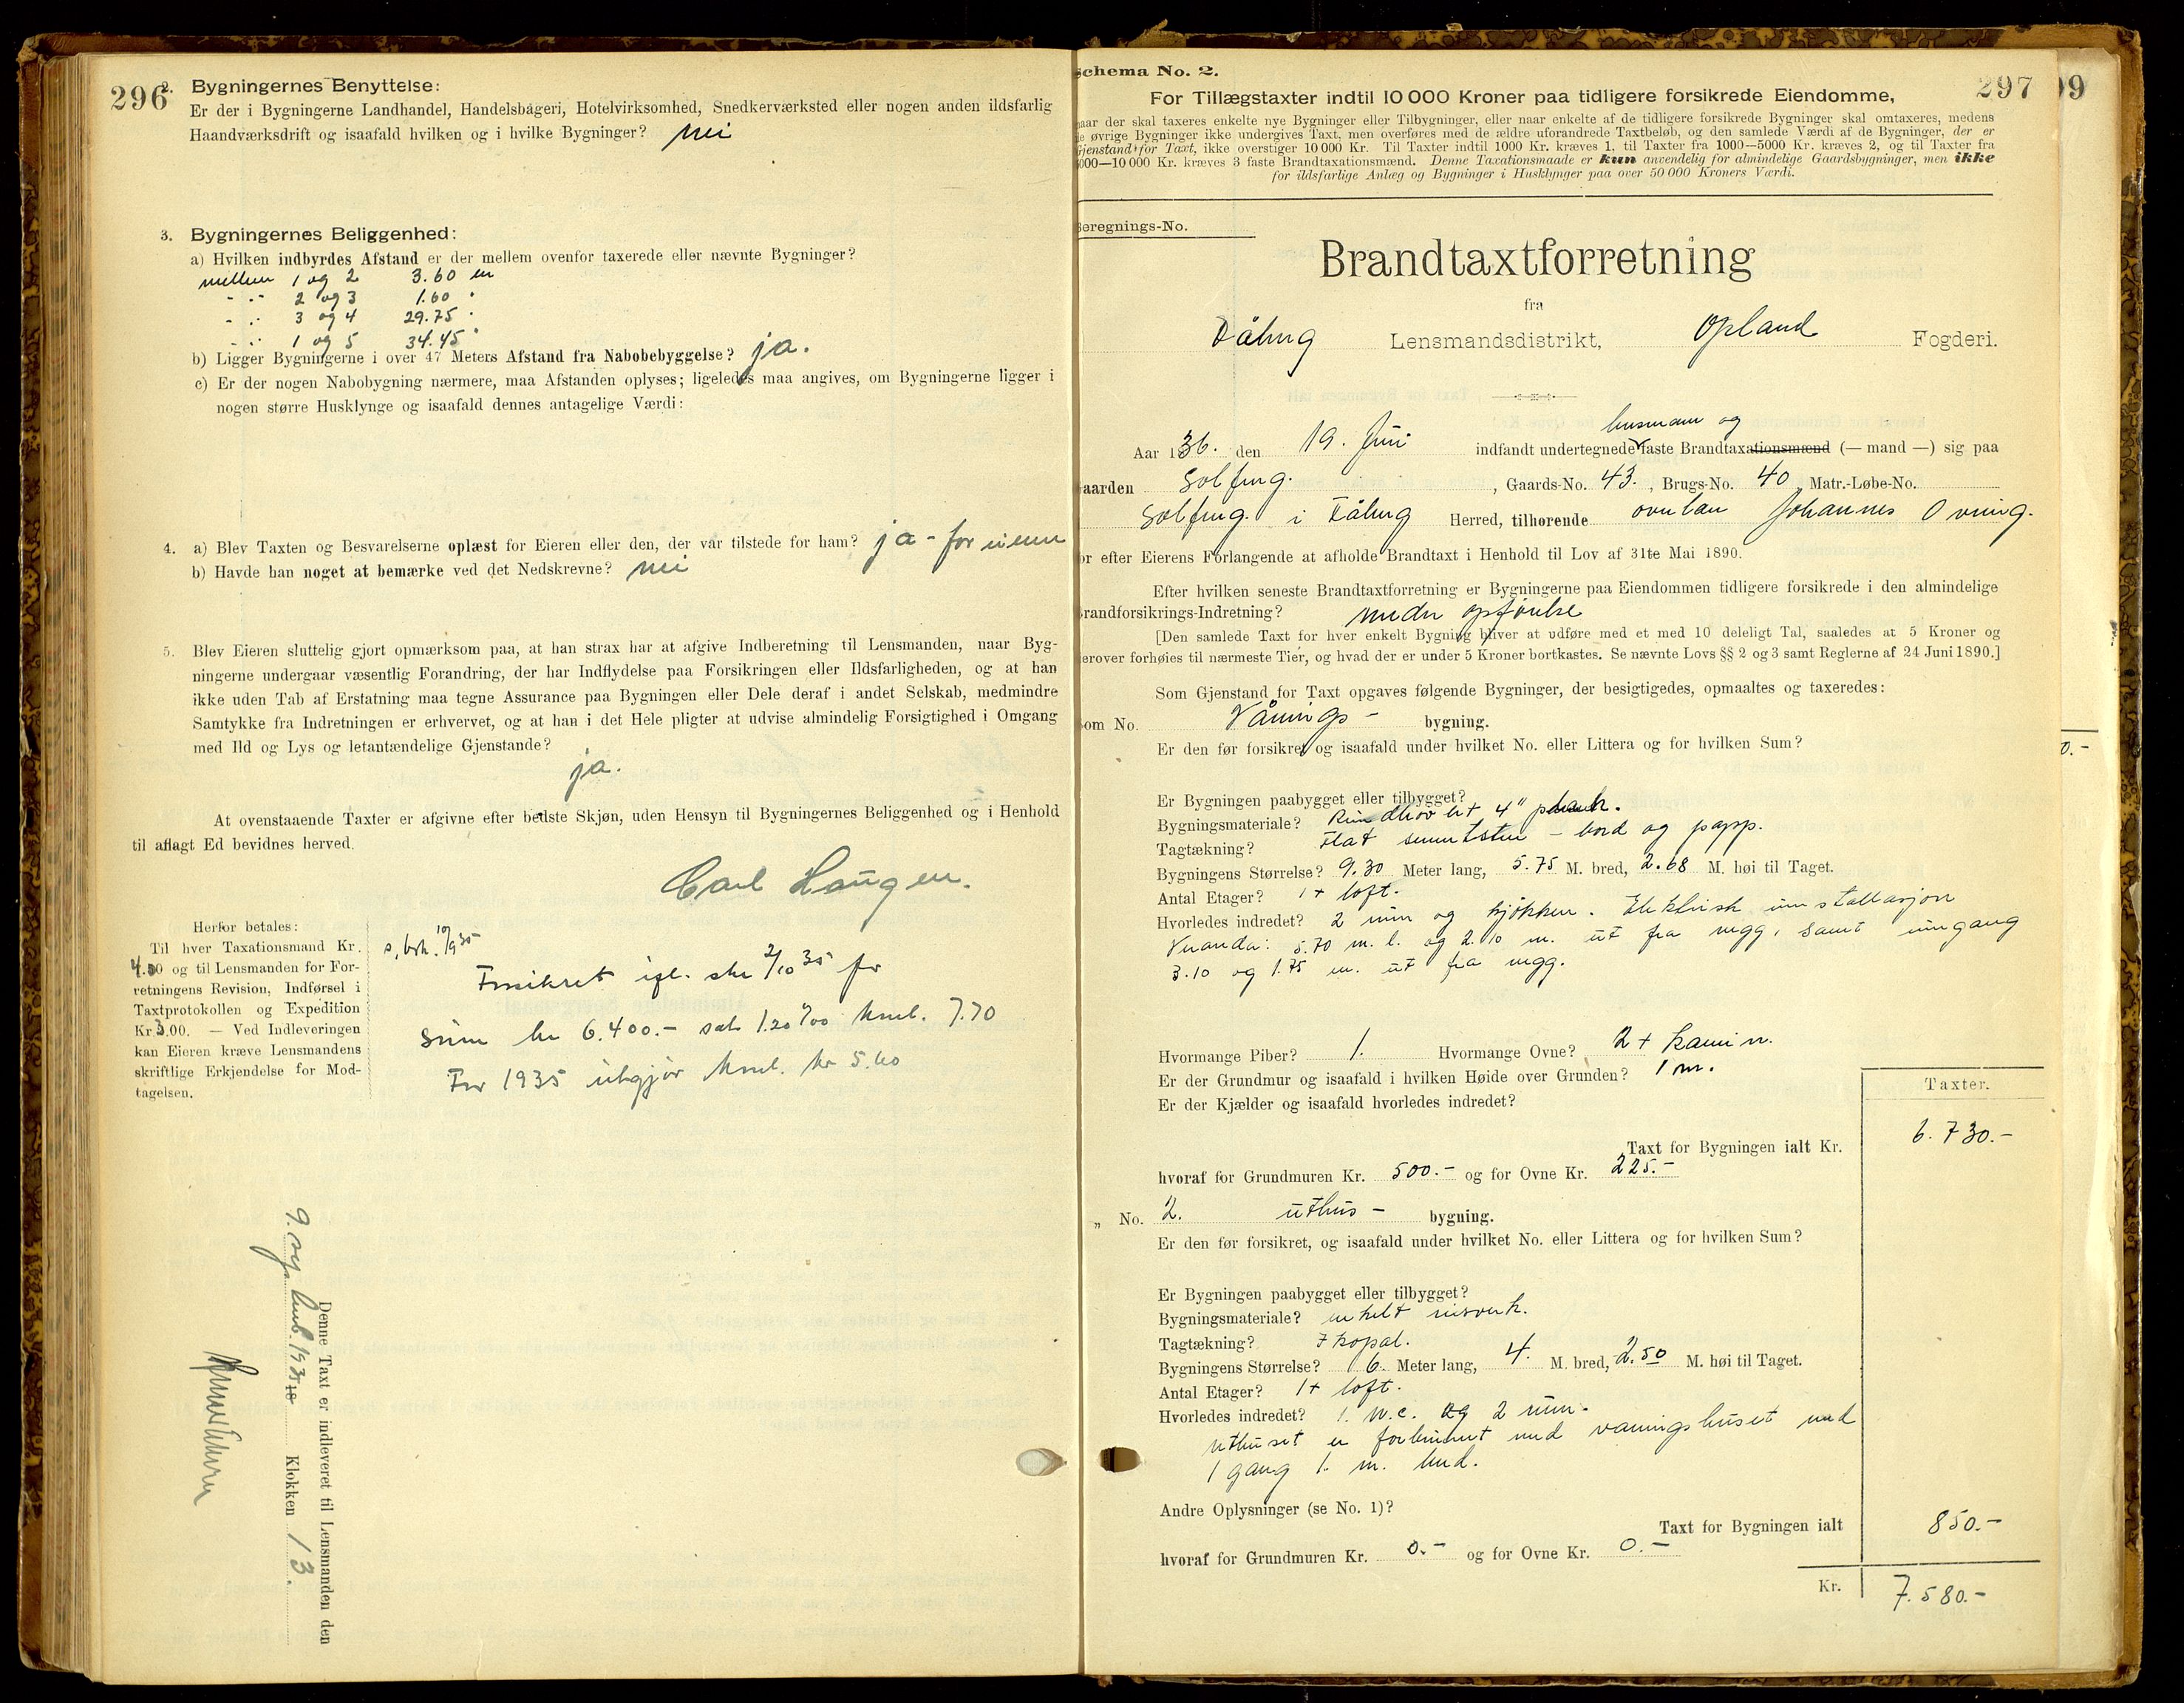 296
2. Bygningernes Benyttelse:
Er der i Bygningerne Landhandel, Handelsbageri, Hotelvirksomhed, Snedkerværksted eller nogen anden ildsfarlig
Haandværksdrift og isaafald hvilken og i hvilke Bygninger? nei
3. Bygningernes Beliggenhed:
a) Hvilken indbyrdes Afstand er der mellem ovenfor taxerede eller nævnte Bygninger?
mellem 1 og 2 3.60 m
- " - 2 og 3 1.60 "
- " - 3 og 4 29.75 "
- " - 1 og 5 34.45 "
b) Ligger Bygningerne i over 47 Meters Afstand fra Nabobebyggelse? ja.
c) Er der nogen Nabobygning nærmere, maa Afstanden oplyses; ligeledes maa angives, om Bygningerne ligger i
nogen større Husklynge og isaafald dennes antagelige Værdi:
4. a) Blev Taxten og Besvarelserne oplæst for Eieren eller den, der var tilstede for ham? ja - for eieren
b) Havde han noget at bemærke ved det Nedskrevne? nei
5. Blev Eieren sluttelig gjort opmærksom paa, at han strax har at afgive Indberetning til Lensmanden, naar Byg-
ningerne undergaar væsentlig Forandring, der har Indflydelse paa Forsikringen eller Ildsfarligheden, og at han
ikke uden Tab af Erstatning maa tegne Assurance paa Bygningen eller Dele deraf i andet Selskab, medmindre
Samtykke fra Indretningen er erhvervet, og at han i det Hele pligter at udvise almindelig Forsigtighed i Omgang
med Ild og Lys og letantændelige Gjenstande?
ja.
At ovenstaaende Taxter er afgivne efter bedste Skjøn, uden Hensyn til Bygningernes Beliggenhed og i Henhold
til aflagt Ed bevidnes herved.
Carl Haugen.
Herfor betales:
Til hver Taxationsmand Kr.
4.00 og til Lensmanden for For-
retningens Revision, Indførsel i
Taxtprotokollen og Expedition
Kr 3.00. — Ved Indleveringen
kan Eieren kræve Lensmandens
skriftlige Erkjendelse for Mod-
tagelsen.
s. brk. 10/9 35
Forsikret igl. skr 2/10 35 for
sum kr 6.400.- sats 1.20 ‰ 7.70
For 1935 utgjør kr 5.60
Denne Taxt er indleveret til Lensmanden den
9. septemb. 1935 Klokken 13.
Schema No. 2.
297
99
For Tillægstaxter indtil 10 000 Kroner paa tidligere forsikrede Eiendomme,
naar der skal taxeres enkelte nye Bygninger eller Tilbygninger, eller naar enkelte af de tidligere forsikrede Bygninger skal omtaxeres, medens
de øvrige Bygninger ikke undergives Taxt, men overføres med de ældre uforandrede Taxtbeløb, og den samlede Værdi af de Bygninger, der er
Gjenstand for Taxt, ikke overstiger 10 000 Kr. Til Taxter indtil 1000 Kr. kræves 1, til Taxter fra 1000—5000 Kr. kræves 2, og til Taxter fra
5000—10 000 Kr. kræves 3 faste Brandtaxationsmænd. Denne Taxationsmaade er kun anvendelig for almindelige Gaardsbygninger, men ikke
for ildsfarlige Anlæg og Bygninger i Husklynger paa over 50 000 Kroners Værdi.
Beregnings-No.
Brandtaxtforretning
fra
Fåberg Lensmandsdistrikt, Opland Fogderi.
lensmann og
Aar 1936. den 19. Juni indfandt undertegnede faste Brandtaxationsmænd (— mand —) sig paa
Gaarden Solfeng. , Gaards-No. 43. , Brugs-No. 40 , Matr.-Løbe-No.
Solfeng. i Fåberg Herred, tilhørende Johannes Owing.
for efter Eierens Forlangende at afholde Brandtaxt i Henhold til Lov af 31te Mai 1890.
Efter hvilken seneste Brandtaxtforretning er Bygningerne paa Eiendommen tidligere forsikrede i den almindelige
Brandforsikrings-Indretning? under opførelse
[Den samlede Taxt for hver enkelt Bygning bliver at udføre med et med 10 deleligt Tal, saaledes at 5 Kroner og
derover forhøies til nærmeste Tier, og hvad der er under 5 Kroner bortkastes. Se nævnte Lovs §§ 2 og 3 samt Reglerne af 24 Juni 1890.]
Som Gjenstand for Taxt opgaves følgende Bygninger, der besigtigedes, opmaaltes og taxeredes:
Som No. Vånings - bygning.
Er den før forsikret og isaafald under hvilket No. eller Littera og for hvilken Sum?
Er Bygningen paabygget eller tilbygget?
Bygningsmateriale? Rundhøvlet 4" plank.
Tagtækning? Flat sementsten - bord og papp.
Bygningens Størrelse? 9.30 Meter lang, 5.75 M. bred, 2.68 M. høi til Taget.
Antal Etager? 1 + loft.
Hvorledes indredet? 2 rum og kjøkken. Elektrisk innstallasjon
Veranda: 5.70 m. l. og 2.10 m. ut fra vegg, samt inngang
3.10 og 1.75 m. ut fra vegg.
Hvormange Piber? 1. Hvormange Ovne? 2 + kamin.
Er der Grundmur og isaafald i hvilken Høide over Grunden? 1 m.
Er der Kjælder og isaafald hvorledes indredet?
Taxter.
Taxt for Bygningen ialt Kr. 6.730.-
hvoraf for Grundmuren Kr. 500.- og for Ovne Kr. 225.-
„ No. 2. uthus - bygning.
Er den før forsikret, og isaafald under hvilket No. eller Littera og for hvilken Sum?
Er Bygningen paabygget eller tilbygget?
Bygningsmateriale? enkelt reisverk.
Tagtækning?
Bygningens Størrelse? 6. Meter lang, 4. M. bred, 2.50 M. høi til Taget.
Antal Etager? 1 + loft.
Hvorledes indredet? 1. W.C. og 2 rum.
Uthuset er forbundet med vaningshuset med
1 gang 1. m. bred.
Andre Oplysninger (se No. 1)?
Taxt for Bygningen ialt 850.-
hvoraf for Grundmuren Kr. 0.- og for Ovne Kr. 0.-
Kr. 7.580.-
0.-